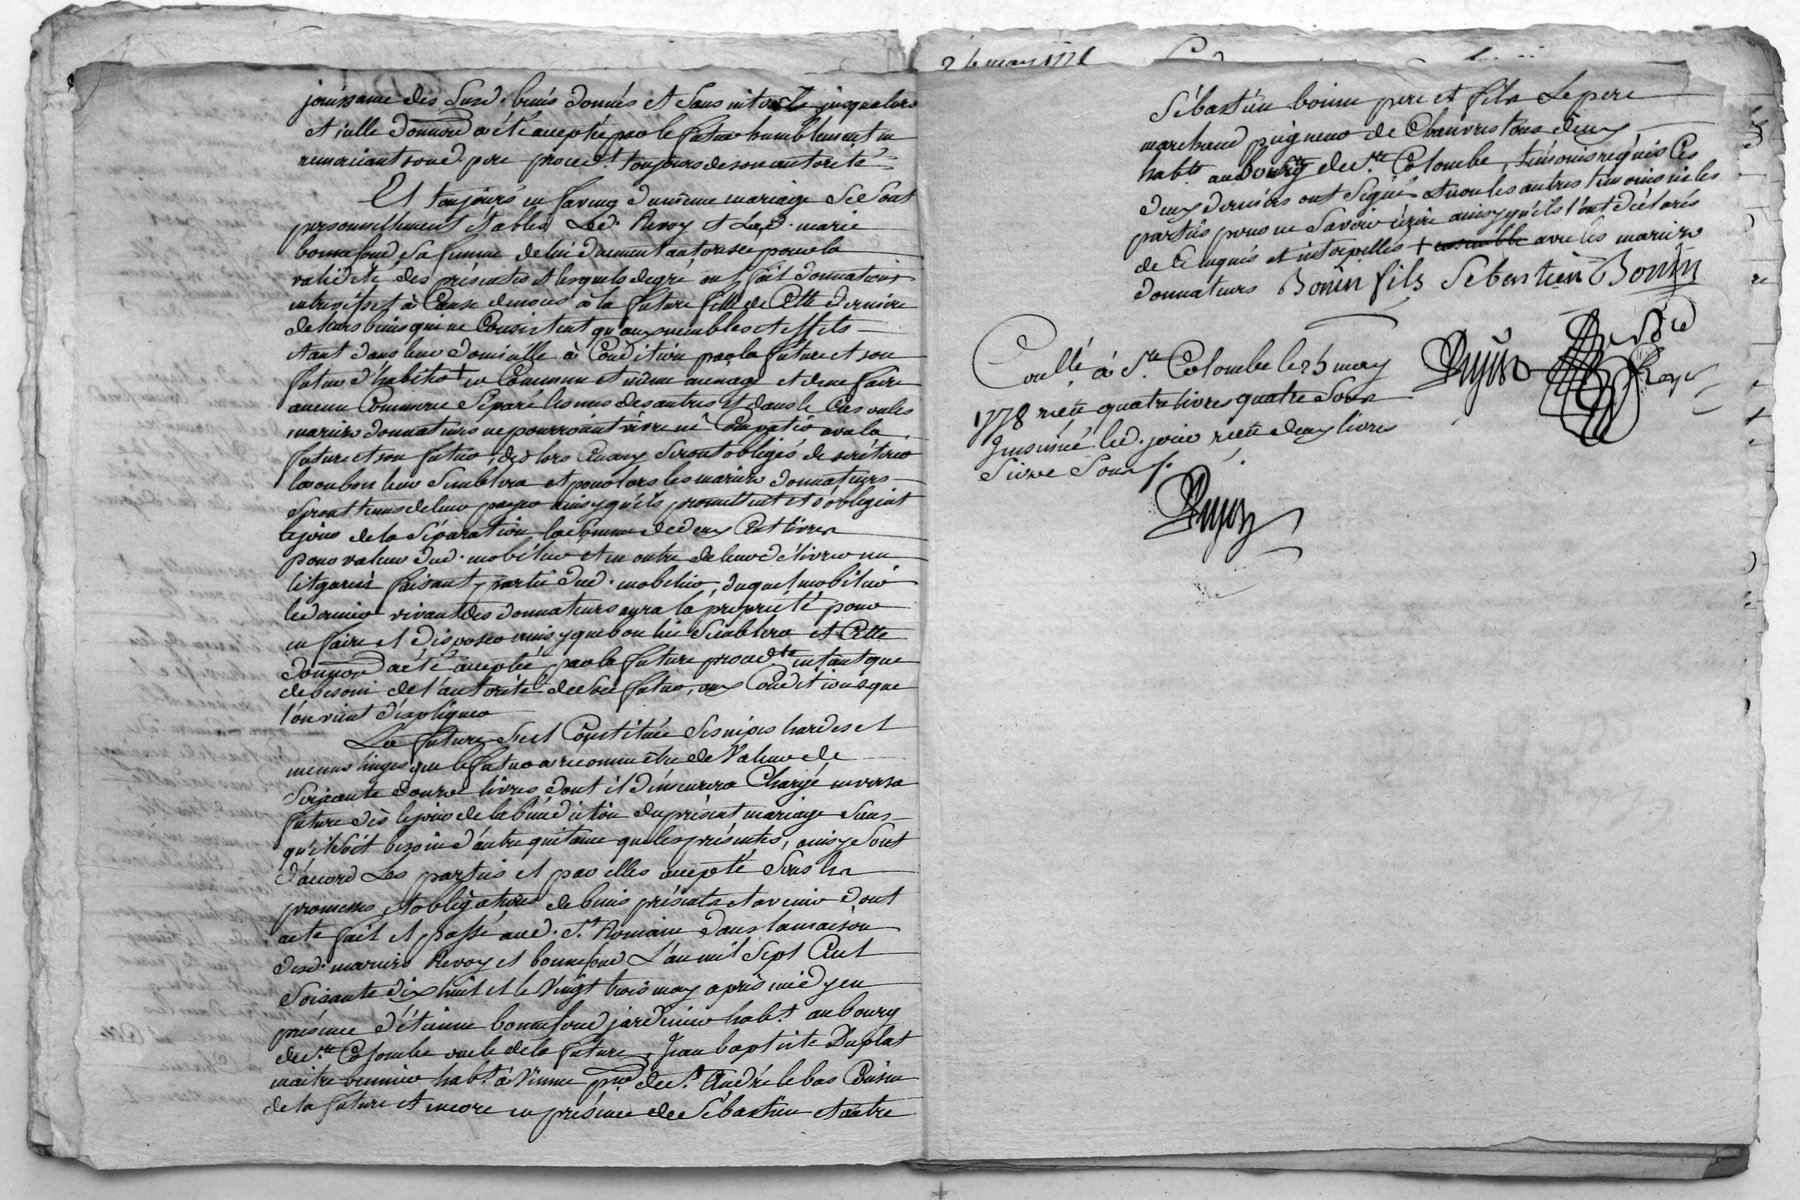 24 may 1778
jouissance des susd. biens donnés et sans interets jusqualors
et icelle donnaon a été acceptée par le futur humblement en
remerciant sond. pere proced.t toujours de son autorité
Et toujours en faveur du meme mariage se sont
personnellement établis led. Revoy et lad. marie
bonnefond sa femme de lui duement autorisée pour la
validité des présentes lesquels de gré ont fait donnation
entrevifs et à cause de noces à la future fille de cette derniere
de leurs biens qui ne consistent qu'aux meubles et effets
étant dans leur domicille à condition par la future et son
futur d'habiter en commun et même menage et de ne faire
aucun commerce séparé les uns des autres et dans le cas ou les
mariés donnateurs ne pourroient vivre ni compatir avec la
future et son futur, des lors ceux cy seront obligés de se rétirer
la ou bon leur semblera et pour lors les mariés donnateurs
seront tenus de leur payer ainsy qu'ils promettent et s'obligent
le jour de la séparation la somme de deux cent livres
pour valeur dud. mobilier et en outre de leur délivrer un
lit garni faisant partie dud. mobilier, duquel mobilier
le dernier vivant des donnateurs aura la propriété pour
en faire et disposer ainsy que bon lui semblera et cette
donnaon a été acceptée par la future proced.te en tant que
de besoin de l'autorité de son futur, aux conditions que
l'on vient d'expliquer
La future s'est constituée ses nipes hardes et
menus linges que le futur a reconnu être de valeur de
soixante douze livres dont il demeurera chargé envers la
future dès le jour de la bénédiction du présent mariage sans
qu'il soit besoin d'autre quittance que les présentes, ainsy sont
d'acord les parties et par elles accepté sous les
promesses et obligations de biens présents et a venir dont
acte fait et passé aud. St. Romain dans la maison
desd. mariés Revoy et bonnefond l'an mil sept cent
soixante dix huit et le vingt trois may après midy en
présence d'étienne bonnefond jardinier hab.t au bourg
de Ste. Colombe oncle de la future, Jean baptiste Duplat
maitre vannier hab.t à Vienne p.sse de St. André le bas cousin
de la future et encore en présence de Sébastien et autre
Sébastien bonin pere et fils le pere
marchand peigneur de chanvre tous deux
hab.ts au bourg de Ste. Colombe, témoins requis ces
deux derniers ont signé et non les autres témoins ni les
parties pour ne savoir écrire ainsy qu'ils l'ont déclarés
de ce enquis et interpellés + ensemble avec les mariés
donnateurs Bonin fils Sebastien Bonin
Conllé à Ste. Colombe le 25 may
1778 reçu quatre livres quatre sous
Insinué led. jour reçu deux livres
seize sous